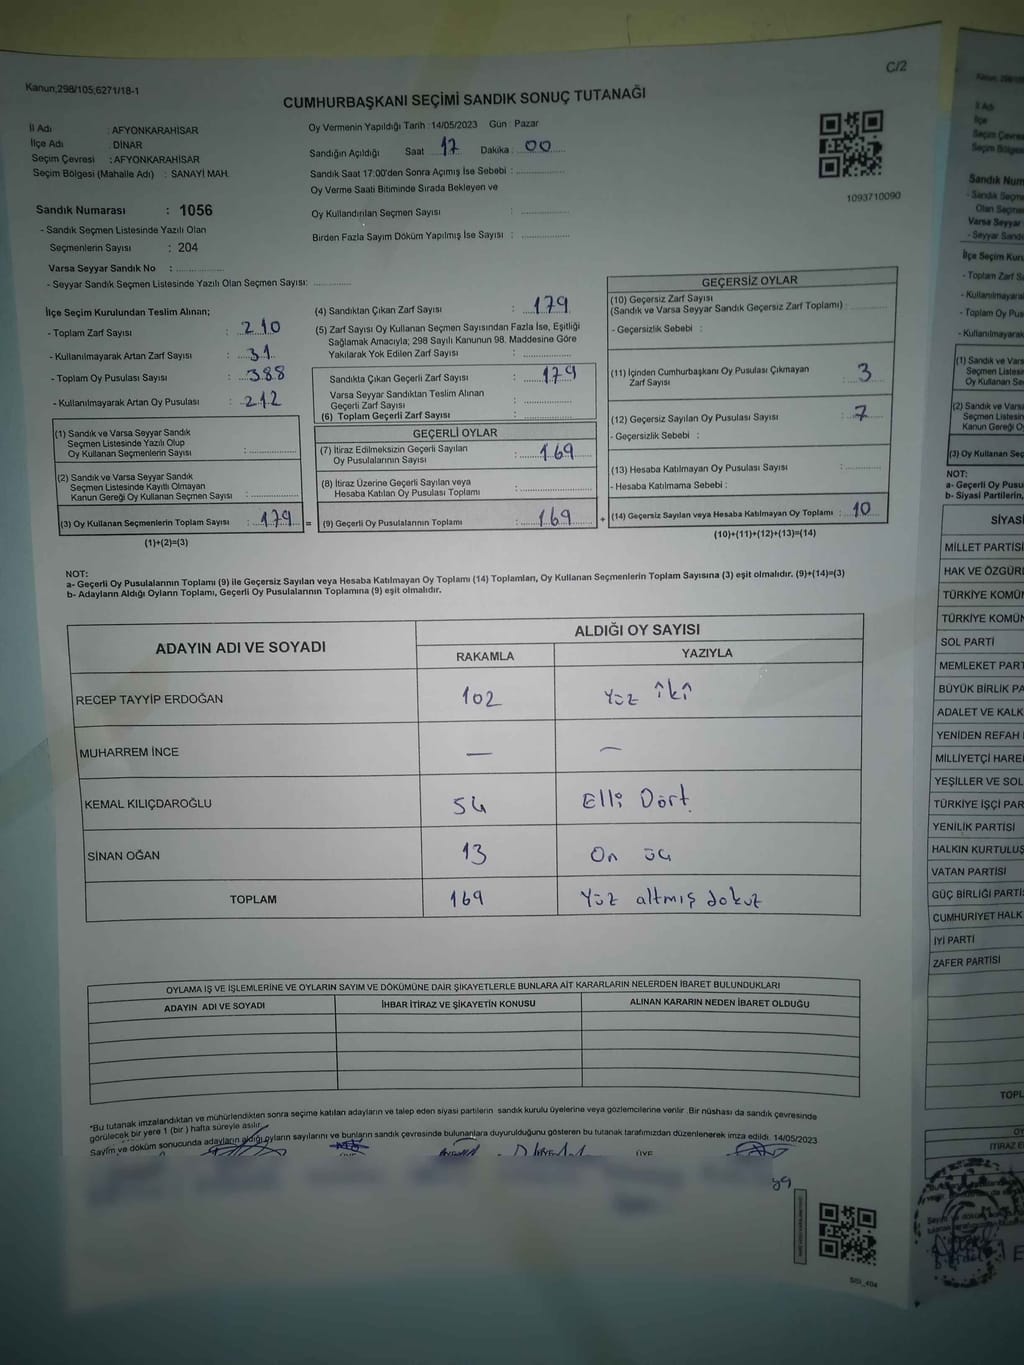 C/2
Kanun,298/105;6271/18-1
CUMHURBAŞKANI SEÇİMİ SANDIK SONUÇ TUTANAĞI
İl Adı : AFYONKARAHİSAR
İlçe Adı : DİNAR
Seçim Çevresi : AFYONKARAHİSAR
Seçim Bölgesi (Mahalle Adı) : SANAYİ MAH.
Oy Vermenin Yapıldığı Tarih : 14/05/2023 Gün : Pazar
Sandığın Açıldığı Saat 17 Dakika : 00
Sandık Saat 17:00'den Sonra Açımış İse Sebebi :
Oy Verme Saati Bitiminde Sırada Bekleyen ve
Oy Kullandırılan Seçmen Sayısı :
Birden Fazla Sayım Döküm Yapılmış İse Sayısı :
1093710090
Sandık Numarası : 1056
- Sandık Seçmen Listesinde Yazılı Olan
Seçmenlerin Sayısı : 204
Varsa Seyyar Sandık No :
- Seyyar Sandık Seçmen Listesinde Yazılı Olan Seçmen Sayısı:
İlçe Seçim Kurulundan Teslim Alınan;
- Toplam Zarf Sayısı : 210
- Kullanılmayarak Artan Zarf Sayısı : 31
- Toplam Oy Pusulası Sayısı : 388
- Kullanılmayarak Artan Oy Pusulası : 212
(1) Sandık ve Varsa Seyyar Sandık
Seçmen Listesinde Yazılı Olup
Oy Kullanan Seçmenlerin Sayısı :
(2) Sandık ve Varsa Seyyar Sandık
Seçmen Listesinde Kayıtlı Olmayan
Kanun Gereği Oy Kullanan Seçmen Sayısı :
(3) Oy Kullanan Seçmenlerin Toplam Sayısı : 179 =
(1)+(2)=(3)
(4) Sandıktan Çıkan Zarf Sayısı : 179
(5) Zarf Sayısı Oy Kullanan Seçmen Sayısından Fazla İse, Eşitliği
Sağlamak Amacıyla; 298 Sayılı Kanunun 98. Maddesine Göre
Yakılarak Yok Edilen Zarf Sayısı :
Sandıkta Çıkan Geçerli Zarf Sayısı : 179
Varsa Seyyar Sandıktan Teslim Alınan
Geçerli Zarf Sayısı :
(6) Toplam Geçerli Zarf Sayısı :
GEÇERLİ OYLAR
(7) İtiraz Edilmeksizin Geçerli Sayılan
Oy Pusulalarının Sayısı : 169
(8) İtiraz Üzerine Geçerli Sayılan veya
Hesaba Katılan Oy Pusulası Toplamı :
(9) Geçerli Oy Pusulalarının Toplamı : 169 +
GEÇERSİZ OYLAR
(10) Geçersiz Zarf Sayısı
(Sandık ve Varsa Seyyar Sandık Geçersiz Zarf Toplamı) :
- Geçersizlik Sebebi :
(11) İçinden Cumhurbaşkanı Oy Pusulası Çıkmayan
Zarf Sayısı : 3
(12) Geçersiz Sayılan Oy Pusulası Sayısı : 7
- Geçersizlik Sebebi :
(13) Hesaba Katılmayan Oy Pusulası Sayısı :
- Hesaba Katılmama Sebebi :
(14) Geçersiz Sayılan veya Hesaba Katılmayan Oy Toplamı : 10
(10)+(11)+(12)+(13)=(14)
NOT:
a- Geçerli Oy Pusulalarının Toplamı (9) ile Geçersiz Sayılan veya Hesaba Katılmayan Oy Toplamı (14) Toplamları, Oy Kullanan Seçmenlerin Toplam Sayısına (3) eşit olmalıdır. (9)+(14)=(3)
b- Adayların Aldığı Oyların Toplamı, Geçerli Oy Pusulalarının Toplamına (9) eşit olmalıdır.
ADAYIN ADI VE SOYADI
ALDIĞI OY SAYISI
RAKAMLA YAZIYLA
RECEP TAYYİP ERDOĞAN 102 Yüz İki
MUHARREM İNCE — —
KEMAL KILIÇDAROĞLU 54 Elli Dört
SİNAN OĞAN 13 On üç
TOPLAM 169 Yüz altmış dokuz
OYLAMA İŞ VE İŞLEMLERİNE VE OYLARIN SAYIM VE DÖKÜMÜNE DAİR ŞİKAYETLERLE BUNLARA AİT KARARLARIN NELERDEN İBARET BULUNDUKLARI
ADAYIN ADI VE SOYADI İHBAR İTİRAZ VE ŞİKAYETİN KONUSU ALINAN KARARIN NEDEN İBARET OLDUĞU
"Bu tutanak imzalandıktan ve mühürlendikten sonra seçime katılan adayların ve talep eden siyasi partilerin sandık kurulu üyelerine veya gözlemcilerine verilir .Bir nüshası da sandık çevresinde
görülecek bir yere 1 (bir ) hafta süreyle asılır.
Sayım ve döküm sonucunda adayların aldığı oyların sayılarını ve bunların sandık çevresinde bulunanlara duyurulduğunu gösteren bu tutanak tarafımızdan düzenlenerek imza edildi. 14/05/2023
ÜYE
Sandık Num
Varsa Seyyar
İlçe Seçim Kuru
- Toplam Zarf S
- Kullanılmayara
- Toplam Oy Pus
- Kullanılmayara
(1) Sandık ve Vars
Seçmen Listesin
Oy Kullanan Se
(2) Sandık ve Varsa
Seçmen Listesin
Kanun Gereği O
(3) Oy Kullanan Seç
NOT:
a- Geçerli Oy Pusu
b- Siyasi Partilerin,
SİYASİ
MİLLET PARTİSİ
HAK VE ÖZGÜRL
TÜRKİYE KOMÜN
TÜRKİYE KOMÜN
SOL PARTİ
MEMLEKET PART
BÜYÜK BİRLİK PA
ADALET VE KALK
YENİDEN REFAH
MİLLİYETÇİ HARE
YEŞİLLER VE SOL
TÜRKİYE İŞÇİ PAR
YENİLİK PARTİSİ
HALKIN KURTULUŞ
VATAN PARTİSİ
GÜÇ BİRLİĞİ PARTİ
CUMHURİYET HALK
İYİ PARTİ
ZAFER PARTİSİ
TOPL